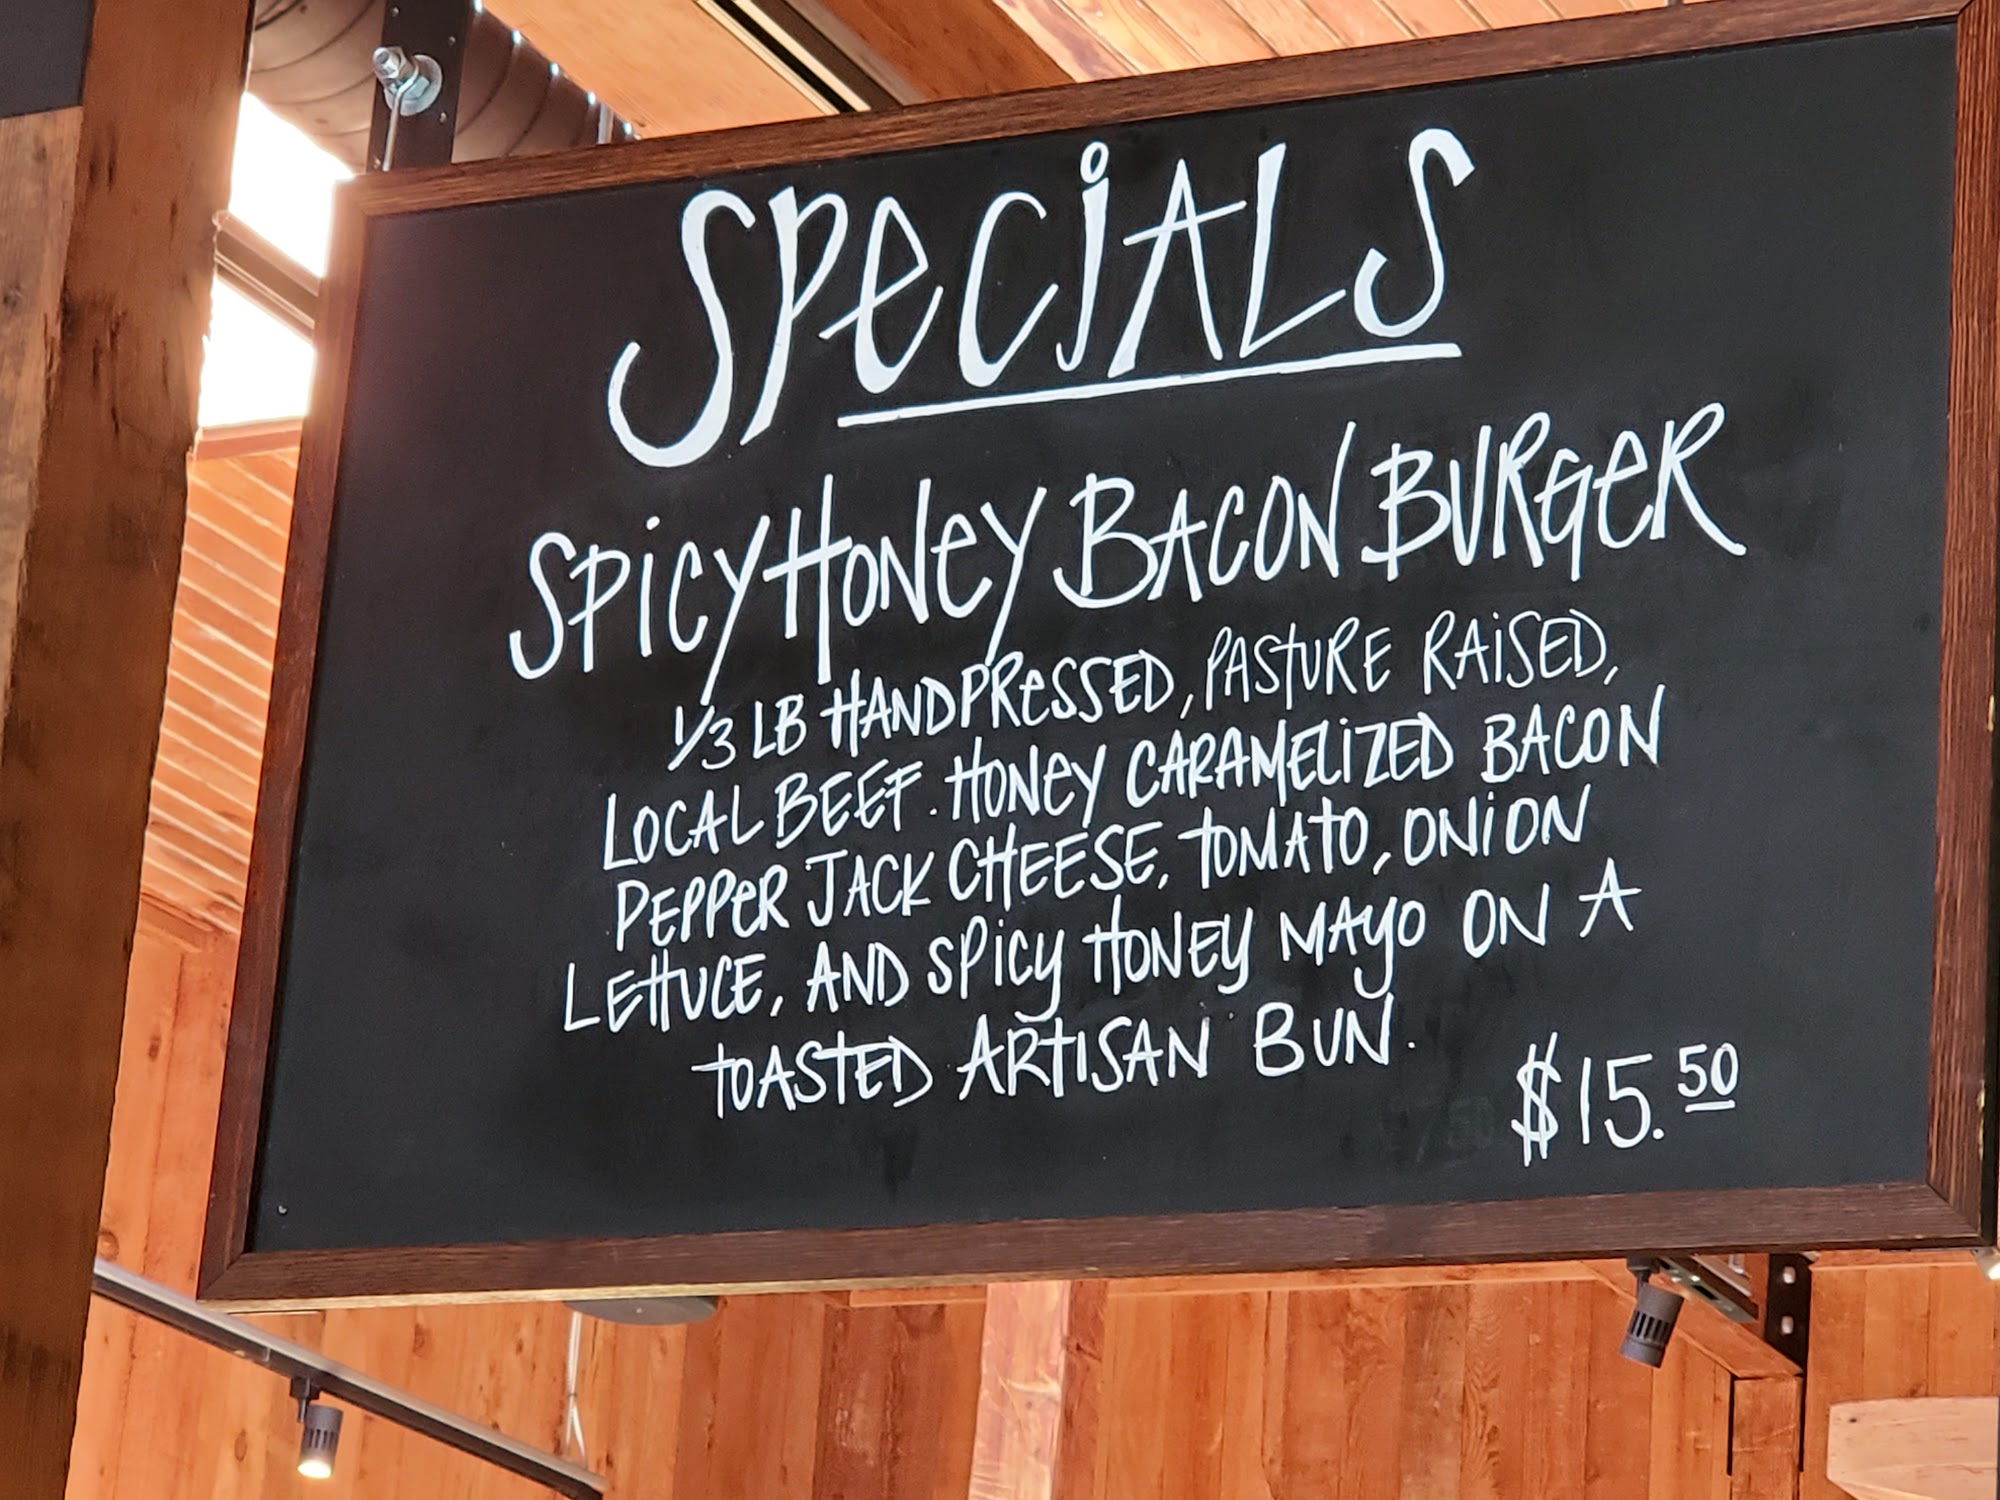 SPECIALS
SPICY HONEY BACON BURGER
1/3 LB HANDPRESSED, PASTURE RAISED,
LOCAL BEEF. HONEY CARAMELIZED BACON
PEPPER JACK CHEESE, TOMATO, ONION
LETTUCE, AND SPICY HONEY MAYO ON A
TOASTED ARTISAN BUN.
$15.50